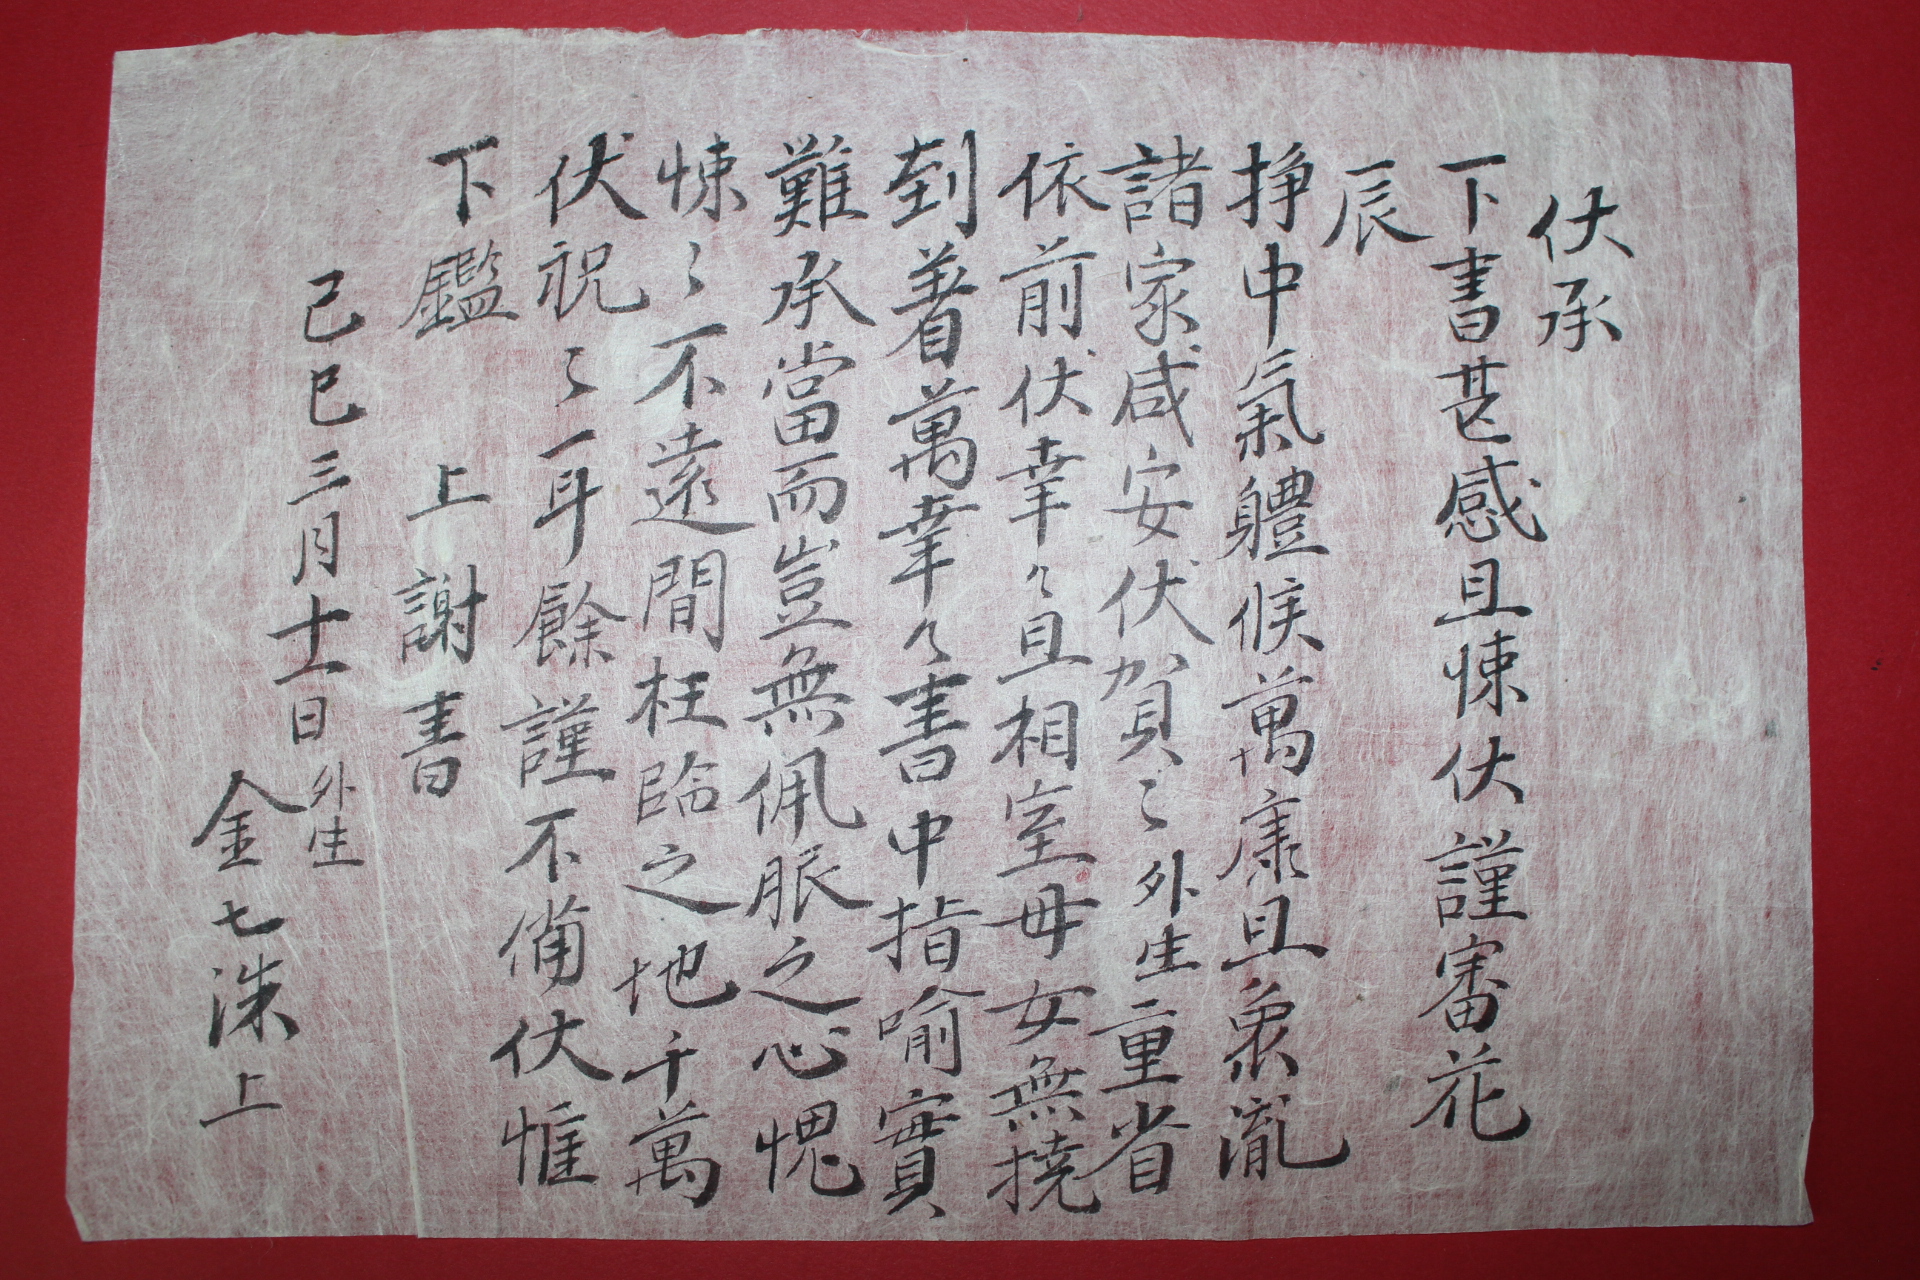 伏承
下書甚感且悚伏謹審花
辰
掙中氣體候萬康且衆胤
諸家咸安伏賀〻外生重省
依前伏幸〻且相室母女無撓
到着萬幸〻書中指喻實
難承當而豈無佩脤之心愧
悚〻不遠間枉臨之地千萬
伏祝〻耳餘謹不備伏惟
下鑑 上謝書
己巳三月十一日外生
金七洙上